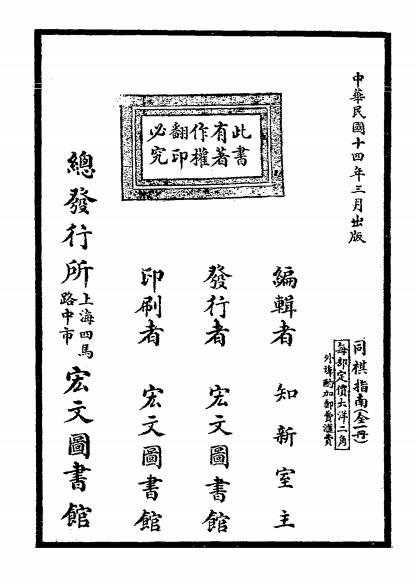 中華民國十四年三月出版
同棋指南(全一冊)
每部定價大洋二角
外埠酌加郵費滙費
此書
有著
作權
翻印
必究
編輯者 知新室主
發行者 宏文圖書館
印刷者 宏文圖書館
總發行所 上海四馬路中市 宏文圖書館